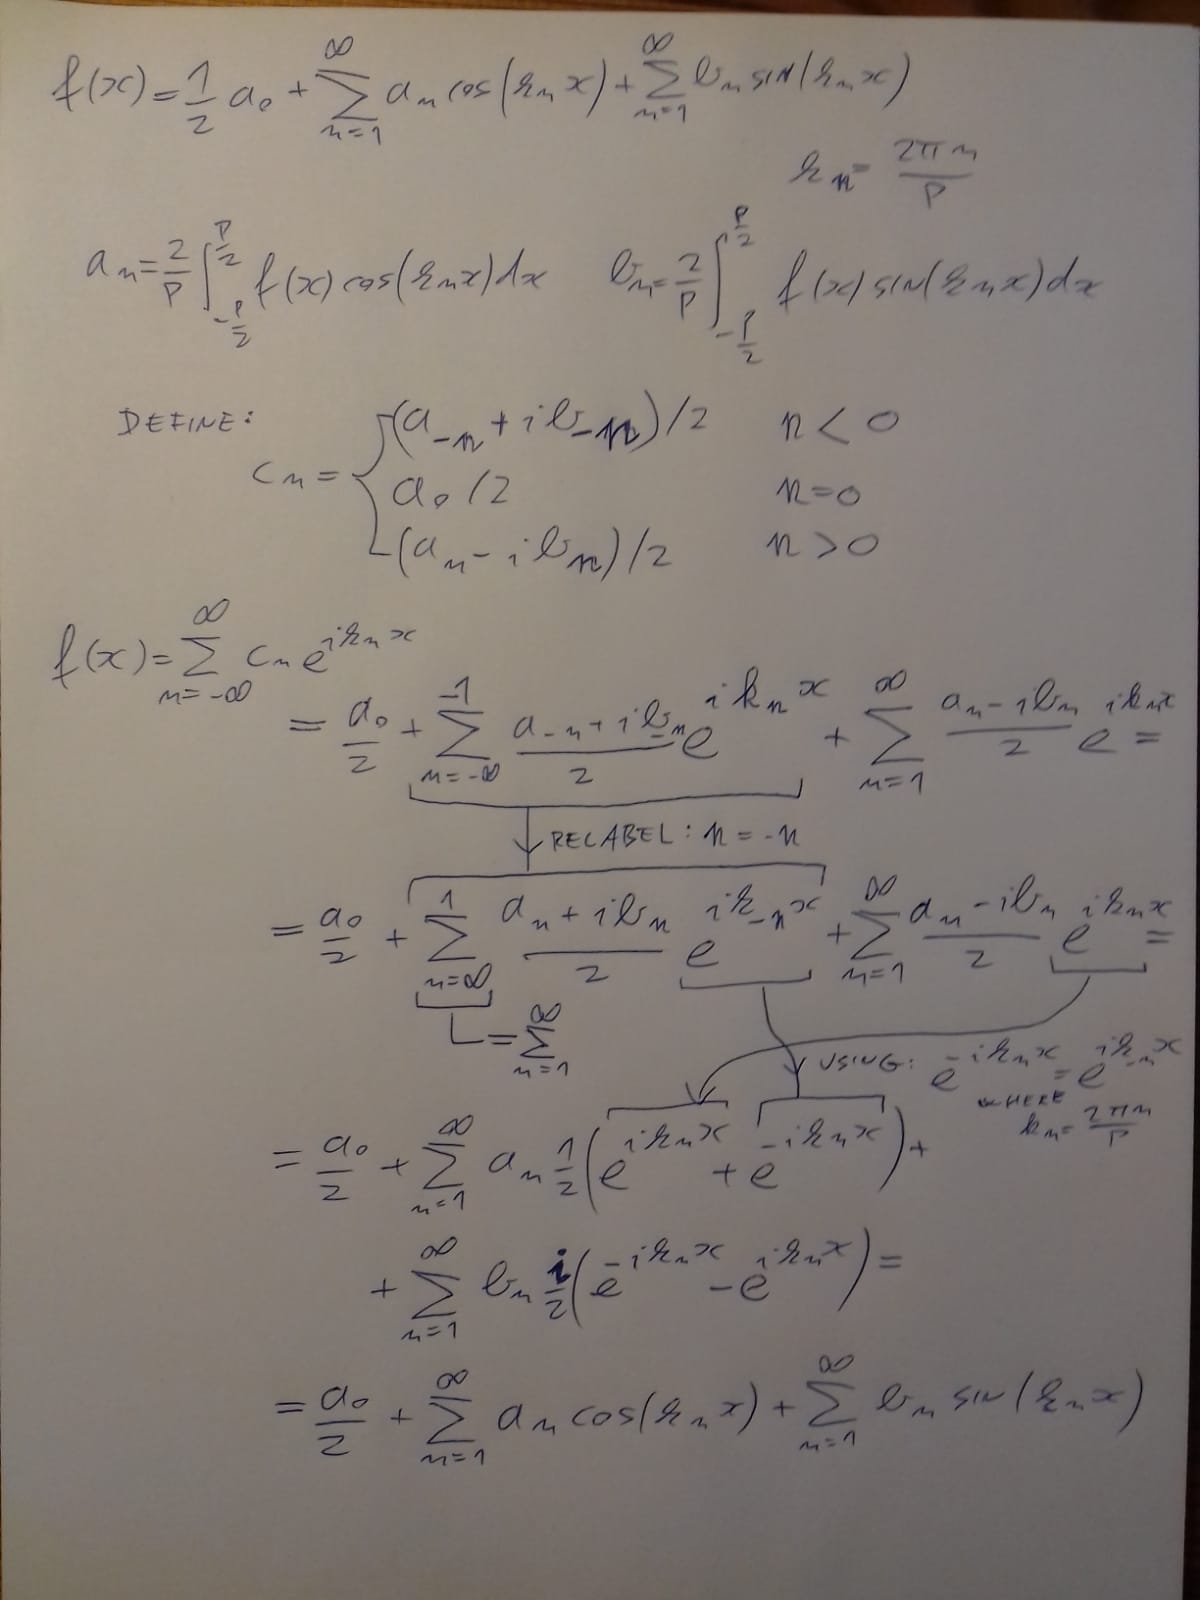 f(x) = 1/2 a₀ + ∑_{n=1}^{∞} aₙ cos(kₙx) + ∑_{n=1}^{∞} bₙ sin(kₙx)
kₙ = 2πn/P
aₙ = 2/P ∫_{-P/2}^{P/2} f(x) cos(kₙx) dx    bₙ = 2/P ∫_{-P/2}^{P/2} f(x) sin(kₙx) dx
DEFINE:
cₙ = { (a₋ₙ + i b₋ₙ)/2    n < 0
a₀/2    n = 0
(aₙ - i bₙ)/2    n > 0
f(x) = ∑_{n=-∞}^{∞} cₙ e^{ikₙx}
= a₀/2 + ∑_{n=-∞}^{-1} (a₋ₙ + i b₋ₙ)/2 e^{ikₙx} + ∑_{n=1}^{∞} (aₙ - i bₙ)/2 e^{ikₙx} =
↓ RELABEL: n = -n
= a₀/2 + ∑_{n=∞}^{1} (aₙ + i bₙ)/2 e^{ik₋ₙx} + ∑_{n=1}^{∞} (aₙ - i bₙ)/2 e^{ikₙx} =
= ∑_{n=1}^{∞}
USING: e^{-ikₙx} = e^{ik₋ₙx}
WHERE kₙ = 2πn/P
= a₀/2 + ∑_{n=1}^{∞} aₙ 1/2 (e^{ikₙx} + e^{-ikₙx}) +
+ ∑_{n=1}^{∞} bₙ i/2 (e^{-ikₙx} - e^{ikₙx}) =
= a₀/2 + ∑_{n=1}^{∞} aₙ cos(kₙx) + ∑_{n=1}^{∞} bₙ sin(kₙx)